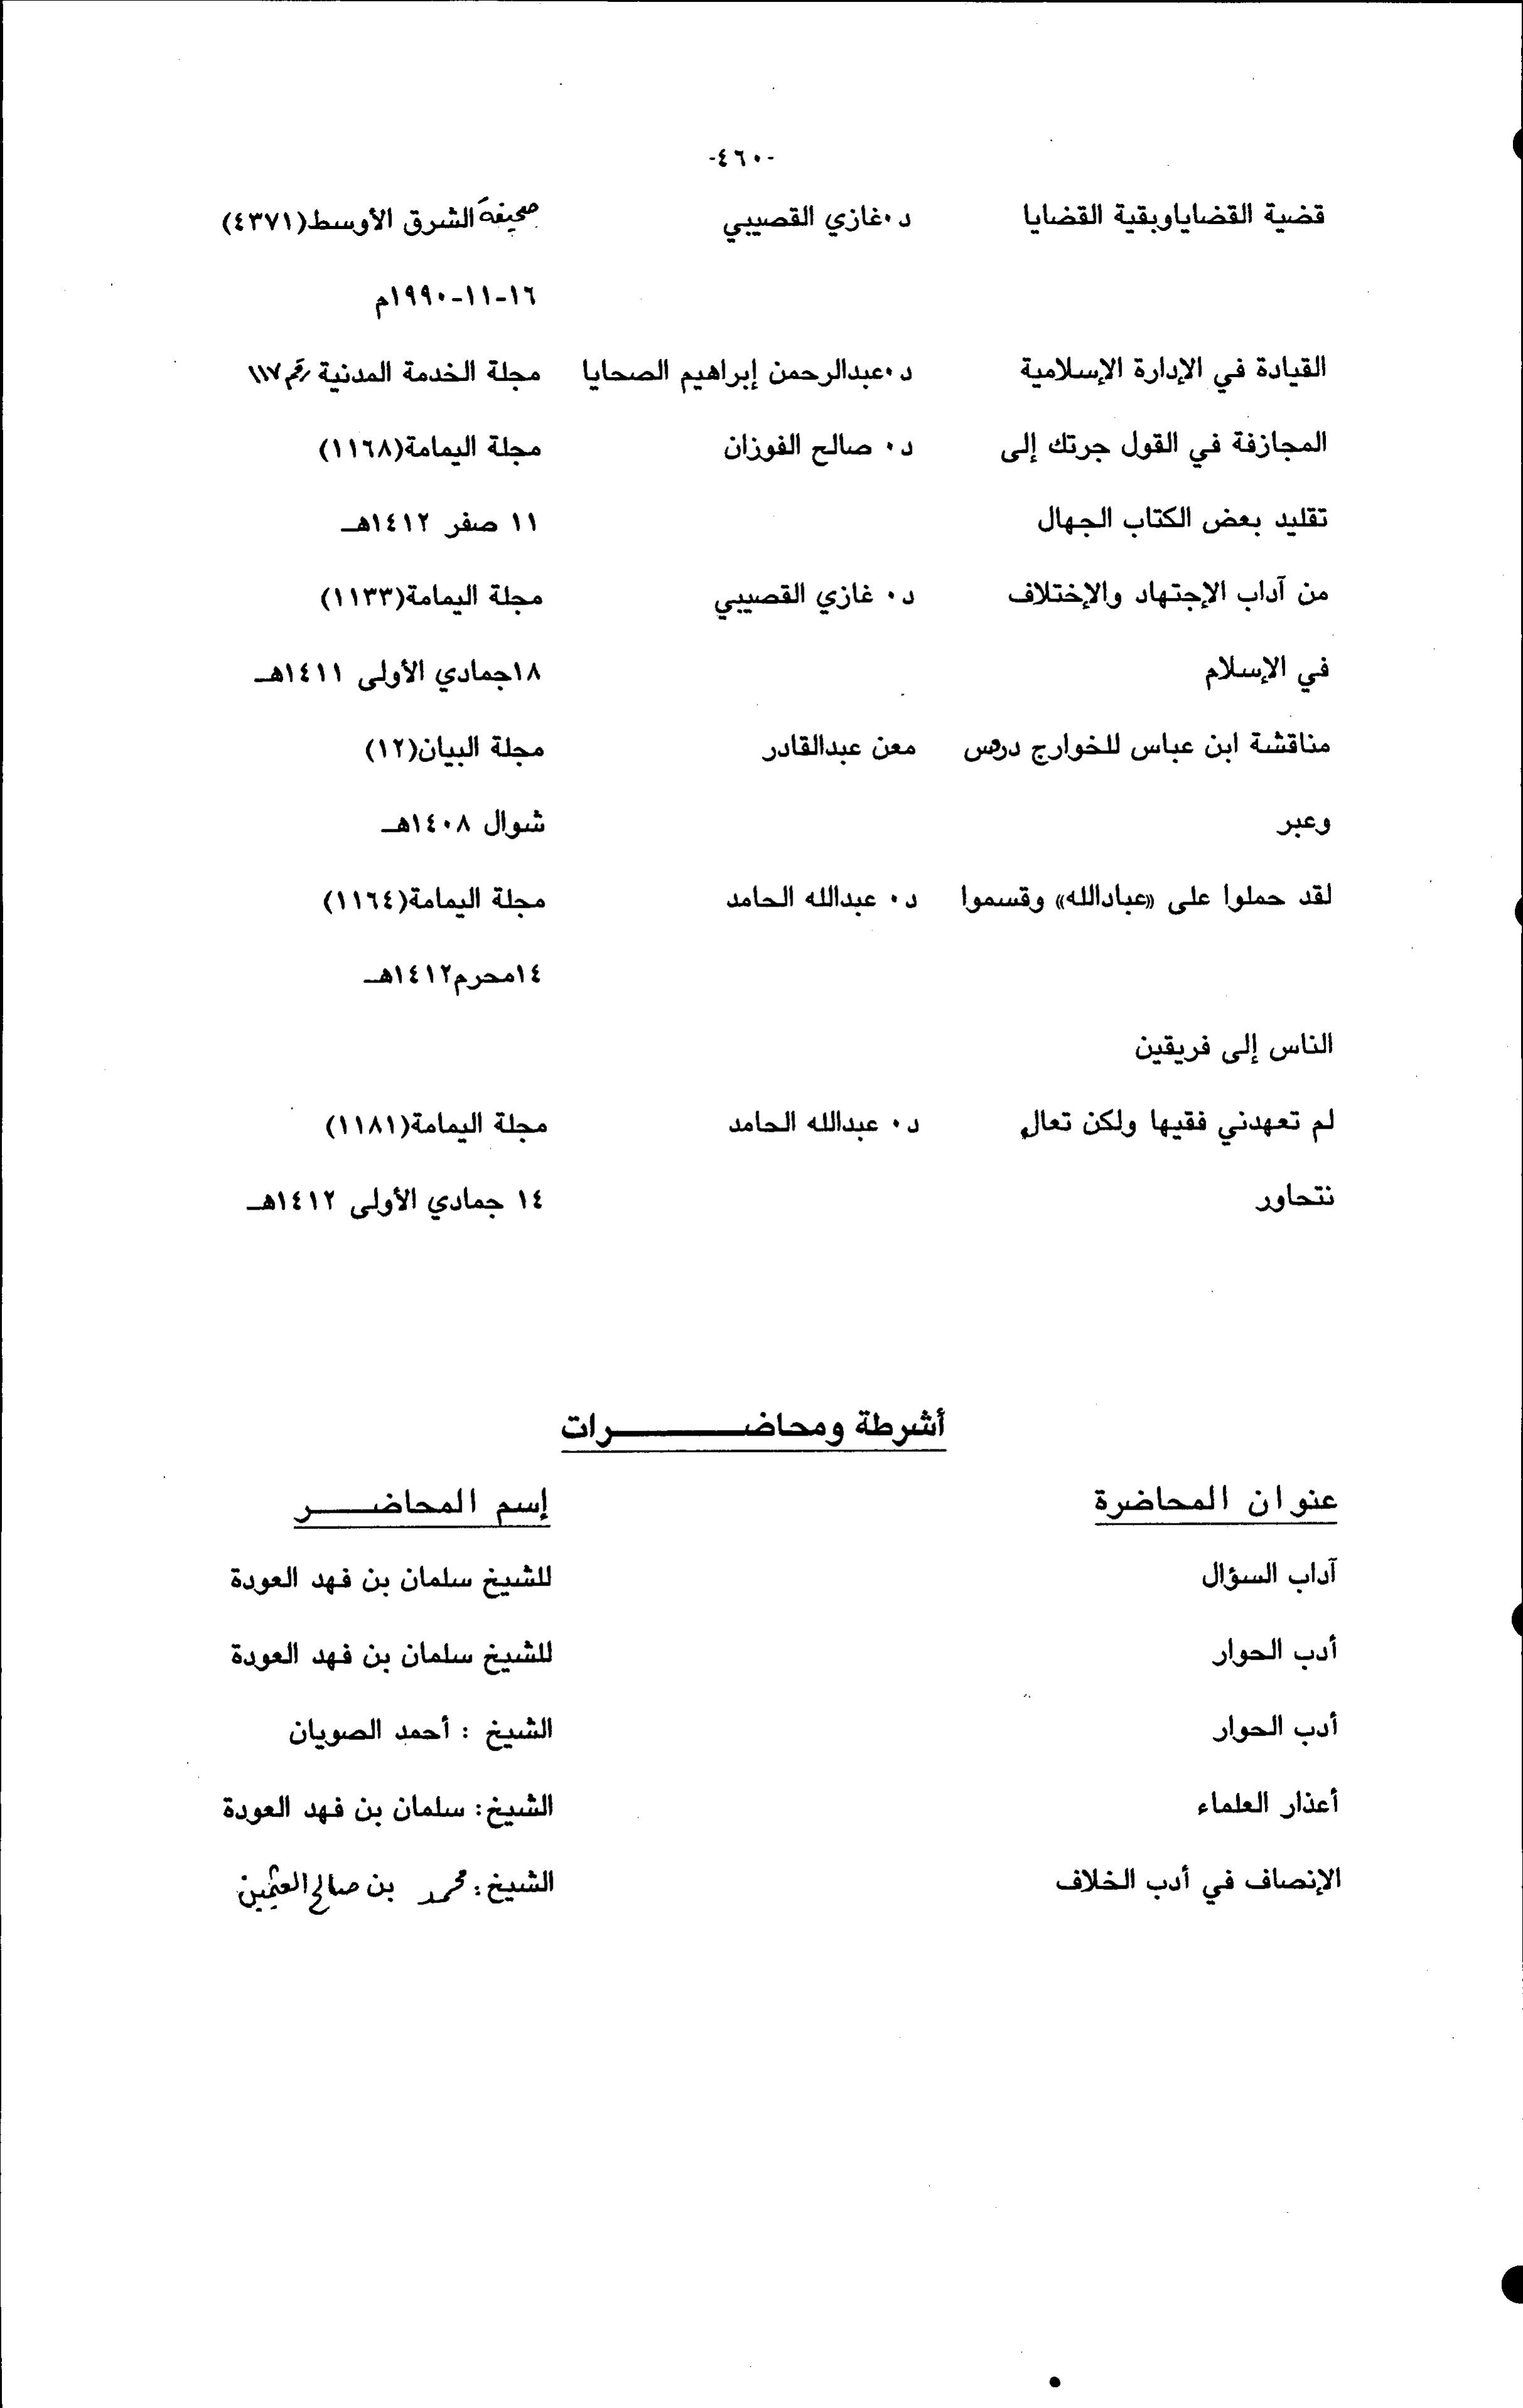 -٤٦٠-
قضية القضاياوبقية القضايا د٠غازي القصيبي صحيفة الشرق الأوسط(٤٣٧١)
١٦-١١-١٩٩٠م
القيادة في الإدارة الإسلامية د٠عبدالرحمن إبراهيم الصحايا مجلة الخدمة المدنية رقم ١١٧
المجازفة في القول جرتك إلى د٠ صالح الفوزان مجلة اليمامة(١١٦٨)
تقليد بعض الكتاب الجهال ١١ صفر ١٤١٢هـ
من آداب الإجتهاد والإختلاف د٠ غازي القصيبي مجلة اليمامة(١١٣٣)
في الإسلام ١٨جمادي الأولى ١٤١١هـ
مناقشة ابن عباس للخوارج دروس معن عبدالقادر مجلة البيان(١٢)
وعبر شوال ١٤٠٨هـ
لقد حملوا على «عبادالله» وقسموا د٠ عبدالله الحامد مجلة اليمامة(١١٦٤)
١٤محرم١٤١٢هـ
الناس إلى فريقين
لم تعهدني فقيها ولكن تعال د٠ عبدالله الحامد مجلة اليمامة(١١٨١)
نتحاور ١٤ جمادي الأولى ١٤١٢هـ
أشرطة ومحاضـــــــرات
عنوان المحاضرة إسم المحاضـــــر
آداب السؤال للشيخ سلمان بن فهد العودة
أدب الحوار للشيخ سلمان بن فهد العودة
أدب الحوار الشيخ : أحمد الصويان
أعذار العلماء الشيخ: سلمان بن فهد العودة
الإنصاف في أدب الخلاف الشيخ: محمد بن صالح العثيمين